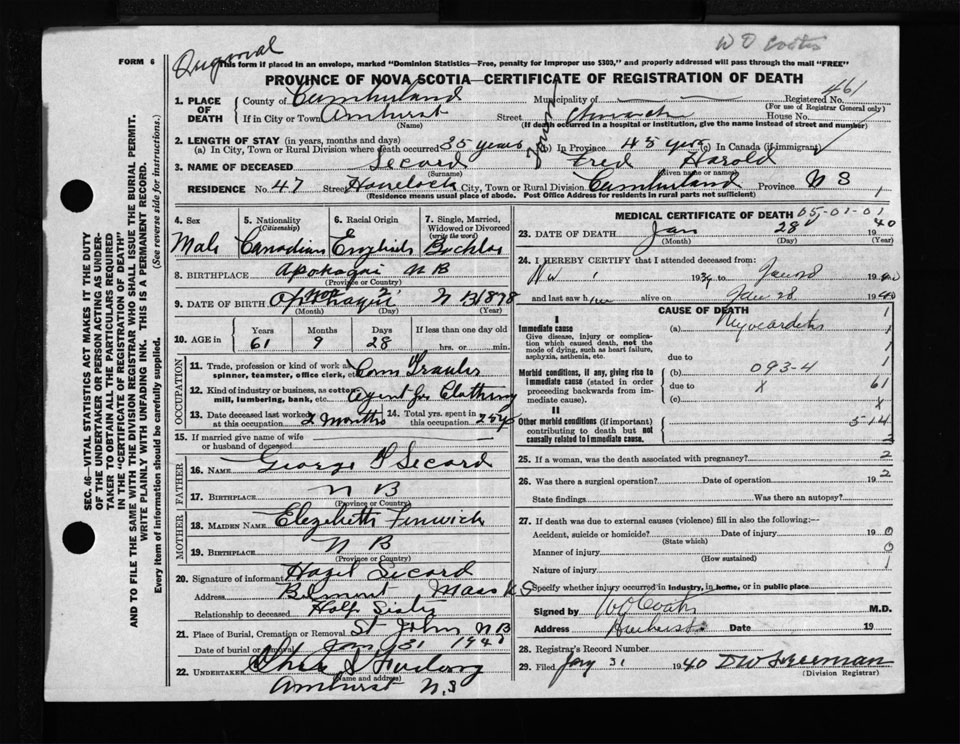 W O Coates
FORM 6
Original
This form if placed in an envelope, marked "Dominion Statistics—Free, penalty for improper use $300," and properly addressed will pass through the mail "FREE"
PROVINCE OF NOVA SCOTIA—CERTIFICATE OF REGISTRATION OF DEATH
SEC. 46—VITAL STATISTICS ACT MAKES IT THE DUTY
OF THE UNDERTAKER OR PERSON ACTING AS UNDER-
TAKER TO OBTAIN ALL THE PARTICULARS REQUIRED
IN THE "CERTIFICATE OF REGISTRATION OF DEATH"
AND TO FILE THE SAME WITH THE DIVISION REGISTRAR WHO SHALL ISSUE THE BURIAL PERMIT.
WRITE PLAINLY WITH UNFADING INK. THIS IS A PERMANENT RECORD.
Every item of information should be carefully supplied. (See reverse side for instructions.)
1. PLACE OF DEATH County of Cumberland Municipality of Registered No. 461
(For use of Registrar General only)
If in City or Town Amherst Street Church House No.
(Name) (If death occurred in a hospital or institution, give the name instead of street and number)
2. LENGTH OF STAY (in years, months and days)
(a) In City, Town or Rural Division where death occurred 35 years (b) In Province 45 years (c) In Canada (if immigrant)
Town
3. NAME OF DECEASED Secord Fred Harold
(Surname) (Given name or names)
RESIDENCE No. 47 Street Havelock City, Town or Rural Division Cumberland Province N S 1
(Residence means usual place of abode. Post Office Address for residents in rural parts not sufficient)
4. Sex 5. Nationality (Citizenship) 6. Racial Origin 7. Single, Married, Widowed or Divorced (write the word)
Male Canadian English Bachlor
8. BIRTHPLACE Apohaqui N B
(Province or Country)
9. DATE OF BIRTH Apohaqui Mar 2 N B 1878
(Month) (Day) (Year)
10. AGE in Years Months Days If less than one day old
61 9 28 hrs. or min.
OCCUPATION
11. Trade, profession or kind of work as spinner, teamster, office clerk, etc. Com Traveler
12. Kind of industry or business, as cotton mill, lumbering, bank, etc. Agent for Clothing
13. Date deceased last worked at this occupation 2 Months 14. Total yrs. spent in this occupation 25 y
15. If married give name of wife or husband of deceased
FATHER
16. NAME George Secord
17. BIRTHPLACE N B
(Province or Country)
MOTHER
18. MAIDEN NAME Elezibeth Fenwick
19. BIRTHPLACE N B
(Province or Country)
20. Signature of informant Hazel Secord
Address Belmont Mass U S
Relationship to deceased Half Sister
21. Place of Burial, Cremation or Removal St John N B
Date of burial or removal Jan 31 1940
22. UNDERTAKER Chas S
Amhurst N.S
MEDICAL CERTIFICATE OF DEATH 05-01-01
23. DATE OF DEATH Jan 28 1940
(Month) (Day) (Year)
24. I HEREBY CERTIFY that I attended deceased from:
19 to 1940
and last saw him alive on Jan 28 1940
CAUSE OF DEATH 1
I
Immediate cause (a) Myocarditis 1
Give disease, injury or complication which caused death, not the mode of dying, such as heart failure, asphyxia, asthenia, etc.
due to 1
Morbid conditions, if any, giving rise to immediate cause (stated in order proceeding backwards from immediate).
(b) 093-4 1
due to X 61
(c) X
II
Other morbid conditions (if important) contributing to death but not causally related to immediate cause. 5-14
2
25. If a woman, was the death associated with pregnancy? 2
26. Was there a surgical operation? Date of operation 19 2
State findings Was there an autopsy?
27. If death was due to external causes (violence) fill in also the following:—
Accident, suicide or homicide? Date of injury 19 0
(State which)
Manner of injury 0
(How sustained)
Nature of injury 1
Specify whether injury occurred in industry, in home, or in public place
Signed by W O Coates M.D.
Address Amherst Date 19
28. Registrar's Record Number
29. Filed Jany 31 1940 D W Freeman
(Division Registrar)